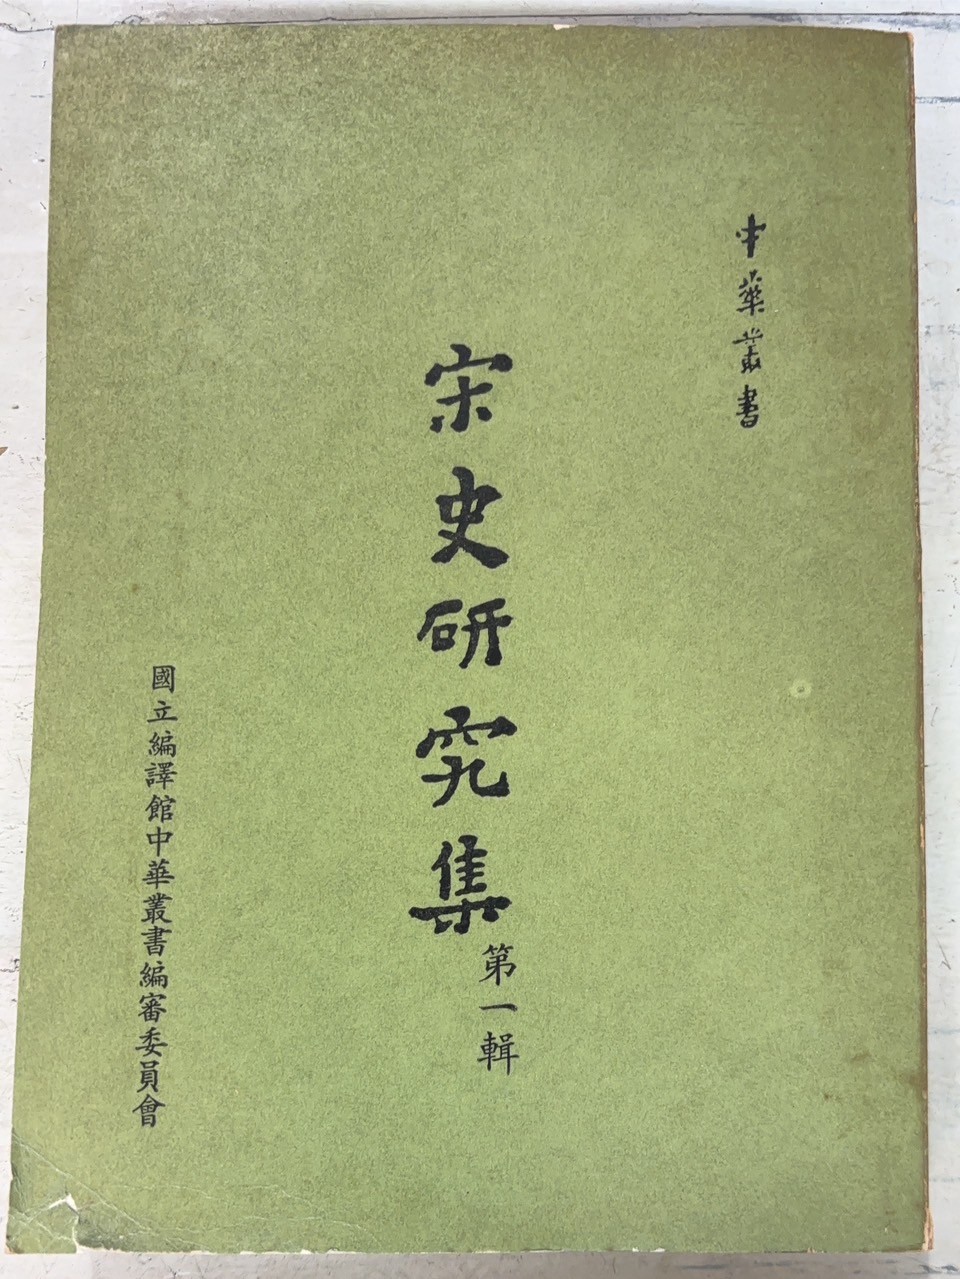 中華叢書
宋史研究集
第一輯
國立編譯館中華叢書編審委員會